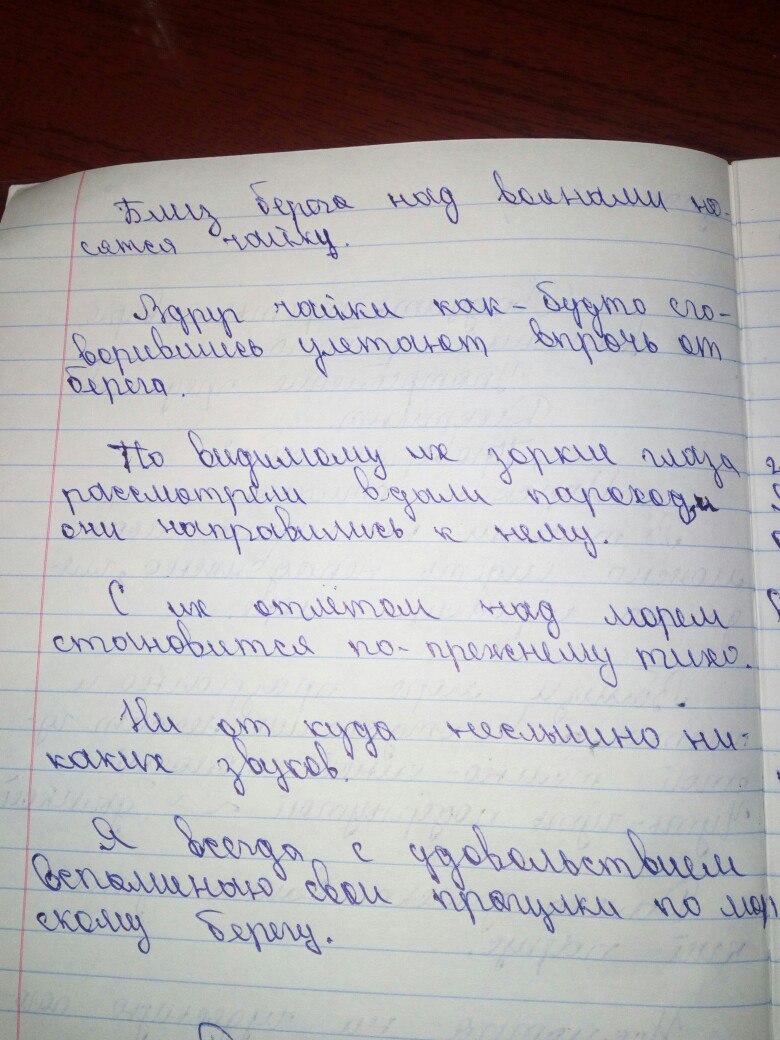 Близ берега над волнами но-
сятся чайки.
Вдруг чайки как-будто сго-
ворившись улетают впрочь от
берега.
По видимому их зоркие глаза
рассмотрели вдали пароход и
они направились к нему.
С их отлётом над морем
становится по-прежнему тихо.
Ни от куда неслышно ни-
каких звуков.
Я всегда с удовольствием
вспоминаю свои прогулки по мор
скому берегу.